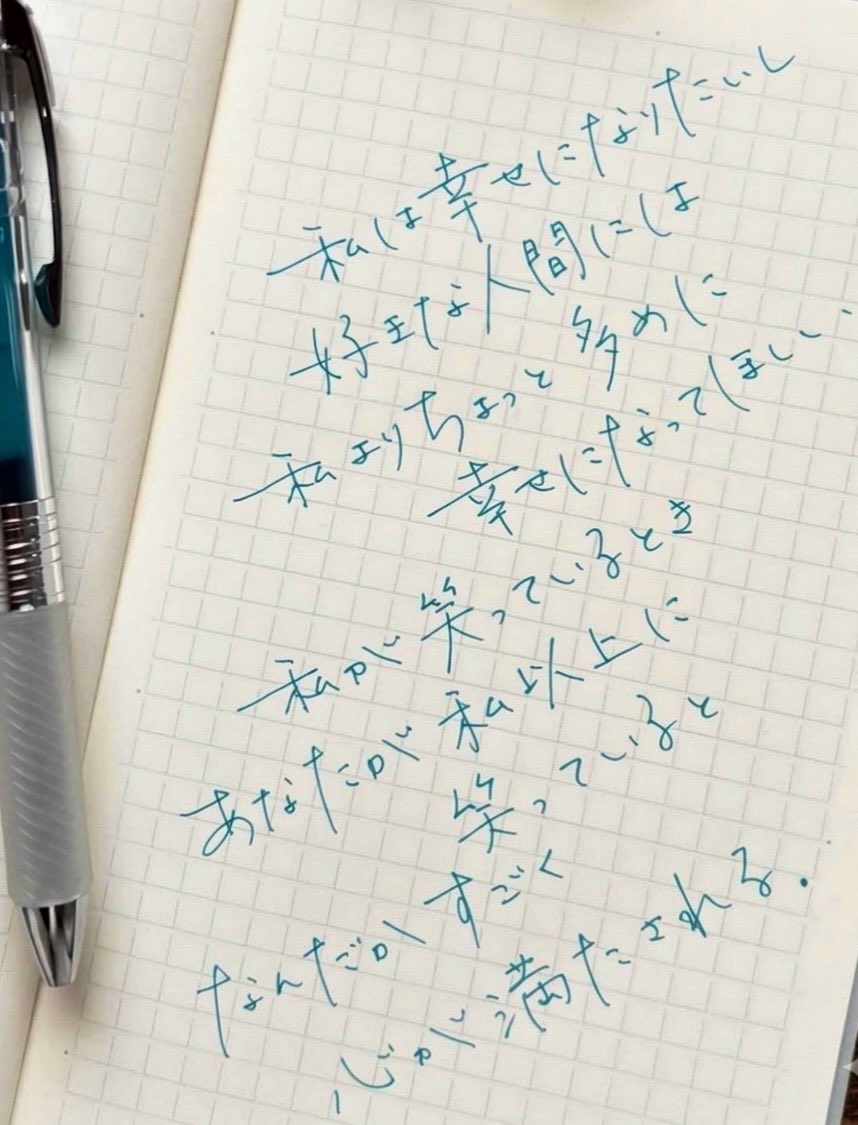 私は幸せになりたいし
好きな人間には
私よりちょっと多めに
幸せになってほしい.
私が笑っているとき
あなたが私以上に
笑っていると
なんだかすごく
心が満たされる.